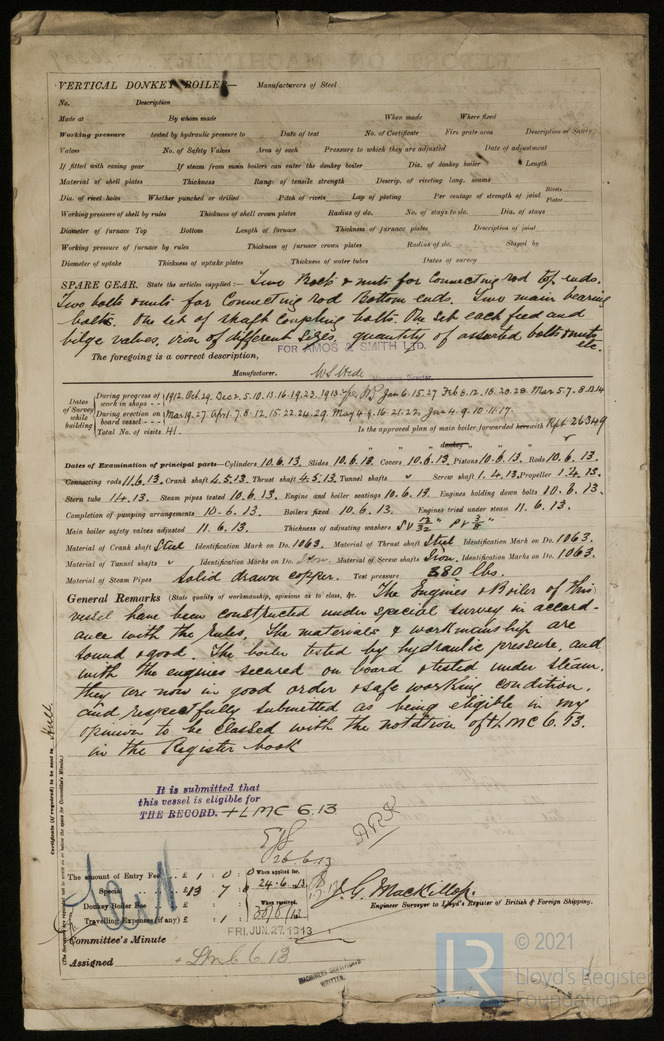 VERTICAL DONKEY BOILER— Manufacturers of Steel
No. Description
Made at By whom made When made Where fixed
Working pressure tested by hydraulic pressure to Date of test No. of Certificate Fire grate area Description of Safety
Valves No. of Safety Valves Area of each Pressure to which they are adjusted Date of adjustment
If fitted with easing gear If steam from main boilers can enter the donkey boiler Dia. of donkey boiler Length
Material of shell plates Thickness Range of tensile strength Descrip. of riveting long. seams
Dia. of rivet holes Whether punched or drilled Pitch of rivets Lap of plating Per centage of strength of joint Rivets Plates
Working pressure of shell by rules Thickness of shell crown plates Radius of do. No. of stays to do. Dia. of stays
Diameter of furnace Top Bottom Length of furnace Thickness of furnace plates Description of joint
Working pressure of furnace by rules Thickness of furnace crown plates Radius of do. Stayed by
Diameter of uptake Thickness of uptake plates Thickness of water tubes Dates of survey
SPARE GEAR. State the articles supplied:— Two Bolts & nuts for Connecting rod top ends.
Two bolts & nuts for Connecting rod Bottom ends. Two main bearing
bolts. One set of shaft coupling bolts. One set each feed and
bilge valves, iron of different sizes, quantity of assorted bolts & nuts
etc.
The foregoing is a correct description, FOR AMOS & SMITH LTD.
Manufacturer. Managing Director.
Dates of Survey while building
During progress of work in shops - - 1912. Oct 29. Dec 2. 5. 10. 13. 16. 19. 23. 1913. Jan 6. 15. 27 Feb 8. 12. 18. 20. 28. Mar 5. 7. 8. 13. 14
During erection on board vessel - - - Mar 19. 27. Apl 1. 7. 8. 12. 15. 22. 24. 29. May 4. 9. 16. 21. 22. Jun 4. 9. 10. 11. 17.
Total No. of visits 41. Is the approved plan of main boiler forwarded herewith Rpt 26349
" " " donkey " " "
Dates of Examination of principal parts—Cylinders 10.6.13. Slides 10.6.13. Covers 10.6.13. Pistons 10.6.13. Rods 10.6.13.
Connecting rods 11.6.13. Crank shaft 4.5.13. Thrust shaft 4.5.13. Tunnel shafts Screw shaft 1.4.13. Propeller 1.4.13.
Stern tube 1.4.13. Steam pipes tested 10.6.13. Engine and boiler seatings 10.6.13. Engines holding down bolts 10.6.13.
Completion of pumping arrangements 10.6.13. Boilers fixed 10.6.13. Engines tried under steam 11.6.13.
Main boiler safety valves adjusted 11.6.13. Thickness of adjusting washers
Material of Crank shaft Steel Identification Mark on Do. 1063. Material of Thrust shaft Steel Identification Mark on Do. 1063.
Material of Tunnel shafts Identification Marks on Do. Material of Screw shafts Iron. Identification Marks on Do. 1063.
Material of Steam Pipes Solid drawn copper. Test pressure 380 lbs.
General Remarks (State quality of workmanship, opinions as to class, &c. The Engines & Boiler of this
vessel have been constructed under special survey in accord-
ance with the rules. The materials & workmanship are
sound & good. The boiler tested by hydraulic pressure, and
with the engines secured on board & tested under steam.
they are now in good order & safe working condition.
and respectfully submitted as being eligible in my
opinion to be Classed with the notation of +LMC 6.13.
in the Register book
Certificate (if required) to be sent to Hull
(The Surveyors are requested not to write on or below the space for Committee's Minute.)
It is submitted that
this vessel is eligible for
THE RECORD. + LMC 6.13
26.6.13
The amount of Entry Fee . . £ 1 : 0 : 0 When applied for,
Special . . . . £ 13 : 7 : 0 24.6.13
Donkey Boiler Fee . . . £ : : When received,
Travelling Expenses (if any) £ : 1 :
J. G. Mackillop.
Engineer Surveyor to Lloyd's Register of British & Foreign Shipping.
Committee's Minute FRI. JUN. 27. 1913
Assigned + LMC 6.13
MACHINERY CERTIFICATE
WRITTEN.
LR
© 2021
Lloyd's Register
Foundation